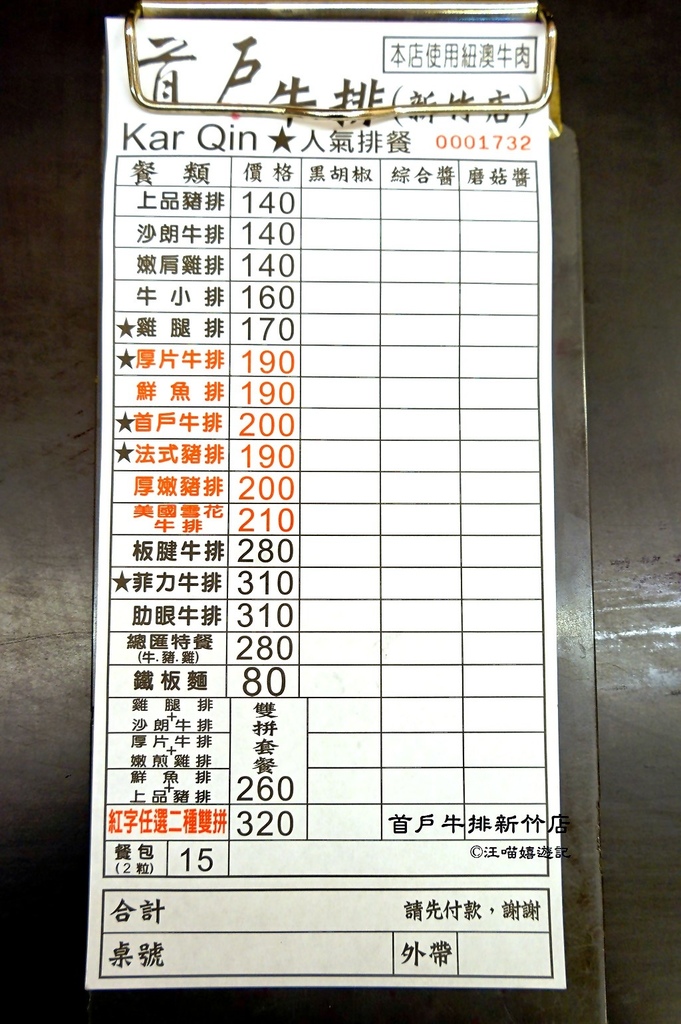 首戶牛排(新竹店)
本店使用紐澳牛肉
Kar Qin ★人氣排餐 0001732
餐類 價格 黑胡椒 綜合醬 磨菇醬
上品豬排 140
沙朗牛排 140
嫩肩雞排 140
牛小排 160
★雞腿排 170
★厚片牛排 190
鮮魚排 190
★首戶牛排 200
★法式豬排 190
厚嫩豬排 200
美國雪花牛排 210
板腱牛排 280
★菲力牛排 310
肋眼牛排 310
總匯特餐 280
(牛.豬.雞)
鐵板麵 80
雞腿排
+
沙朗牛排
厚片牛排
+
嫩煎雞排
鮮魚排
+
上品豬排
雙拼套餐 260
紅字任選二種雙拼 320
首戶牛排新竹店
©汪喵嬉遊記
餐包 15
(2粒)
合計 請先付款，謝謝
桌號 外帶